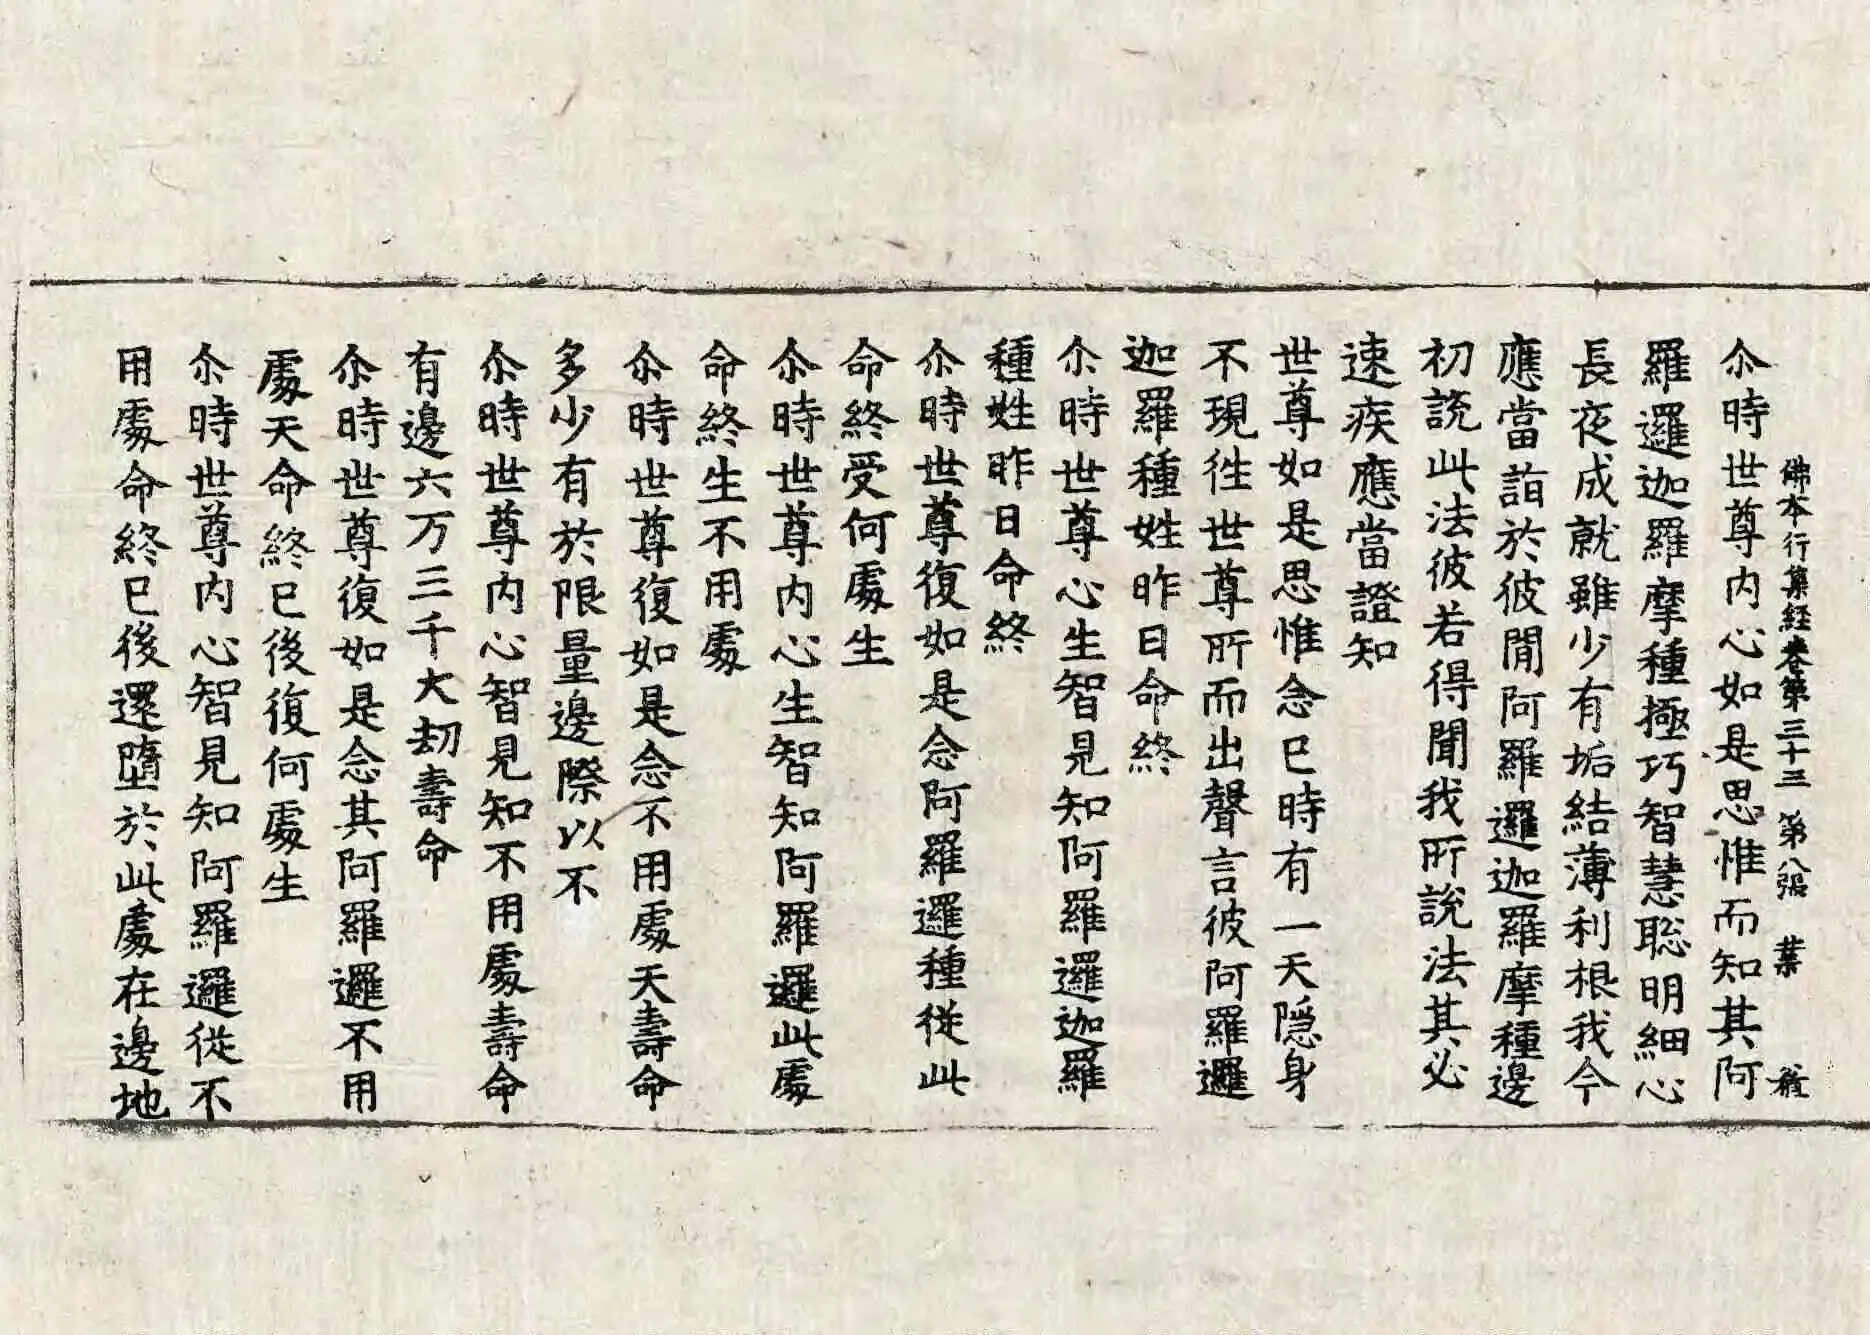 佛本行集経卷第三十三 第八張 業
尒時世尊内心如是思惟而知其阿
羅邏迦羅摩種極巧智慧聡明細心
長夜成就雖少有垢結薄利根我今
應當詣於彼閒阿羅邏迦羅摩種邊
初說此法彼若得聞我所說法其必
速疾應當證知
世尊如是思惟念已時有一天隱身
不現徃世尊所而出聲言彼阿羅邏
迦羅種姓昨日命終
尒時世尊心生智見知阿羅邏迦羅
種姓昨日命終
尒時世尊復如是念阿羅邏種従此
命終受何處生
尒時世尊内心生智知阿羅邏此處
命終生不用處
尒時世尊復如是念不用處天壽命
多少有於限量邊際以不
尒時世尊内心智見知不用處壽命
有邊六万三千大劫壽命
尒時世尊復如是念其阿羅邏不用
處天命終已後復何處生
尒時世尊内心智見知阿羅邏従不
用處命終已後還墮於此處在邊地